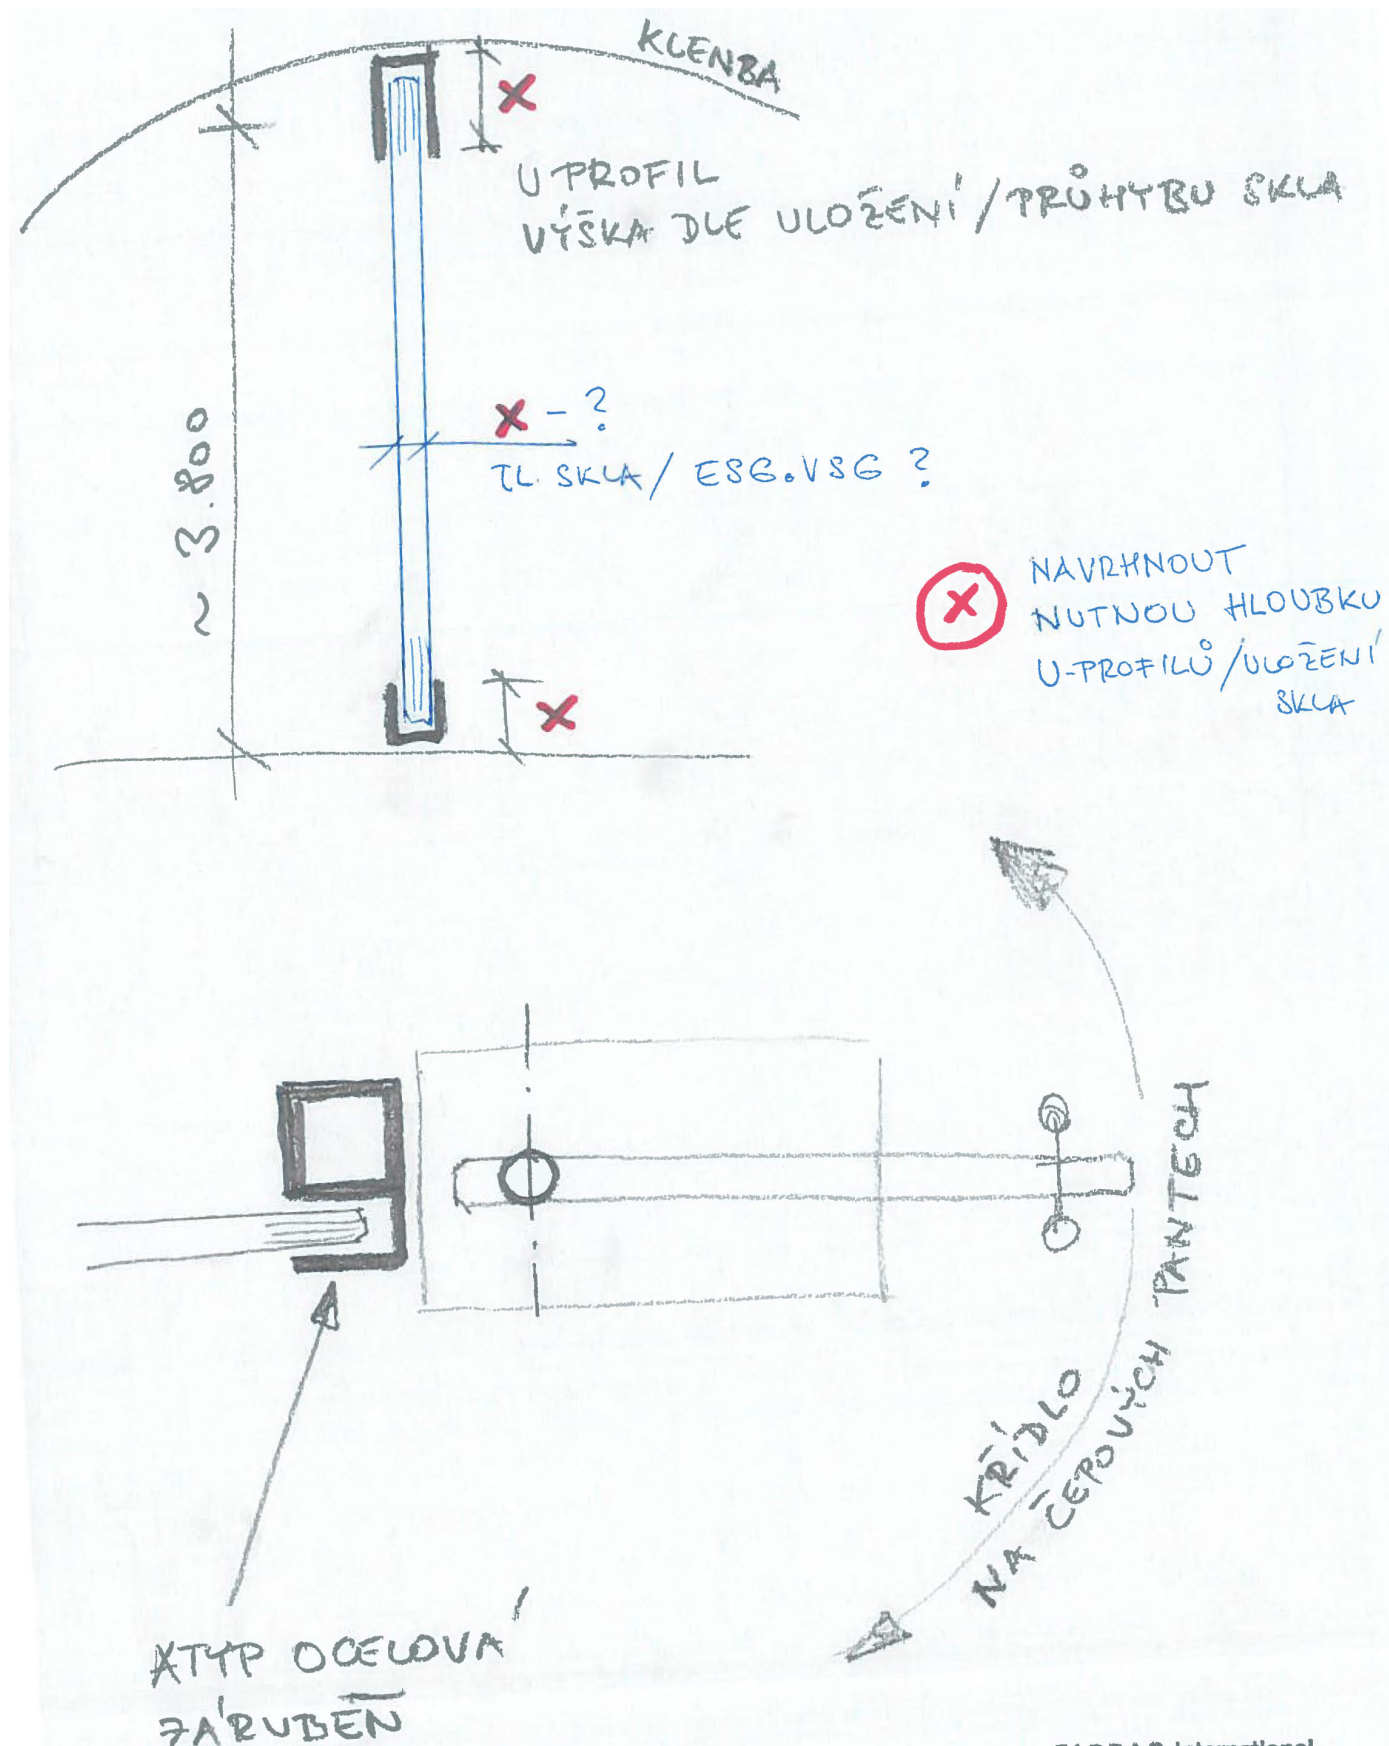 KLENBA
U PROFIL
VÝŠKA DLE ULOŽENÍ / PRŮHYBU SKLA
~ 3.800
x - ?
TL. SKLA / ESG.VSG ?
x NAVRHNOUT
NUTNOU HLOUBKU
U-PROFILŮ / ULOŽENÍ
SKLA
KŘÍDLO
NA ČEPOVÝCH PANTECH
ATYP OCELOVÁ
ZÁRUBEŇ